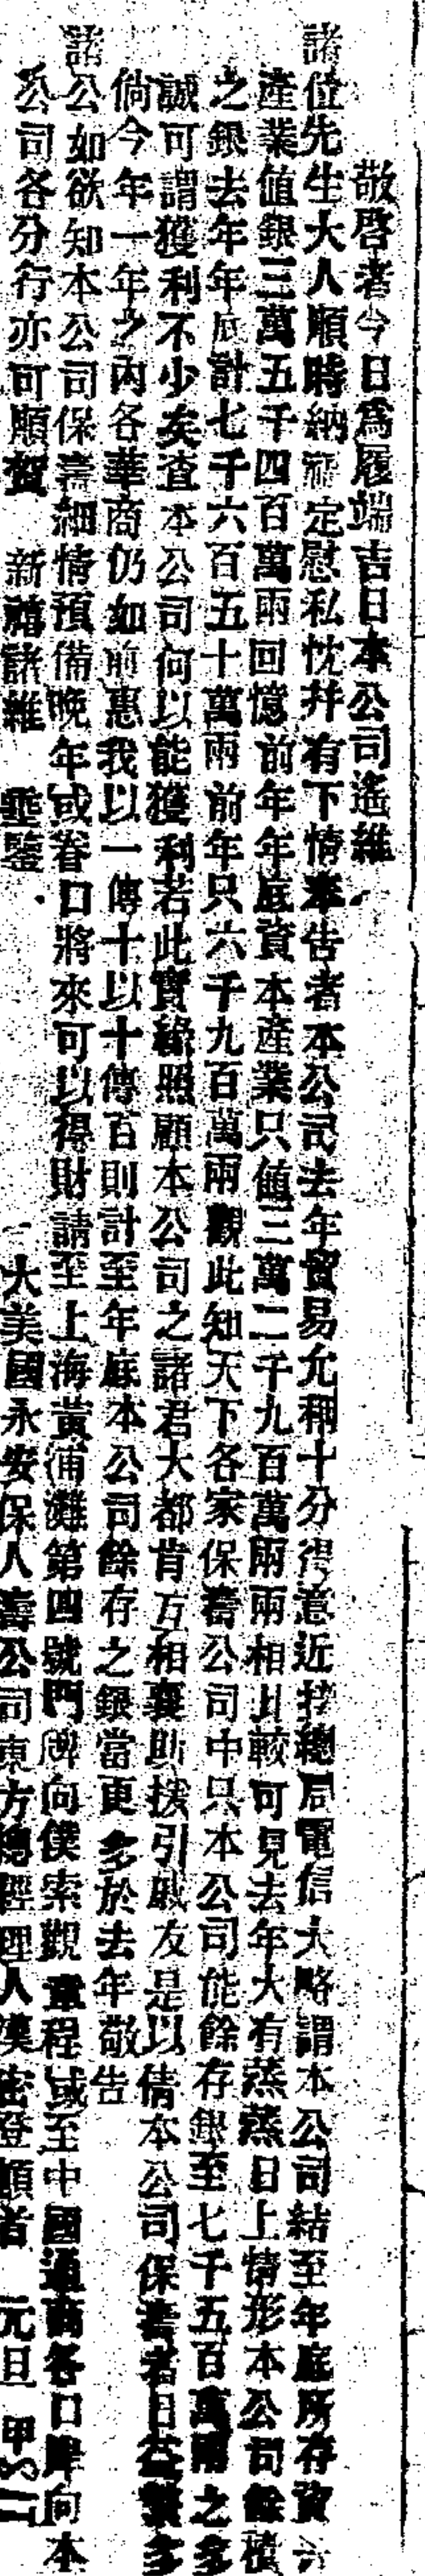 敬啓者今日爲履端吉日本公司遙維
諸位先生大人順時納祜定慰私忱幷有下情奉告者本公司去年貿易允稱十分得意近接總局電信大略謂本公司結至年底所存資本
產業値銀三萬五千四百萬兩回憶前年年底資本產業只値三萬二千九百萬兩兩相比較可見去年大有蒸蒸日上情形本公司餘積
之銀去年年底計七千六百五十萬兩前年只六千九百萬兩觀此知天下各家保壽公司中只本公司能餘存銀至七千五百萬兩之多
誠可謂獲利不少矣查本公司何以能獲利若此實緣照顧本公司之諸君大都肯互相襄助援引戚友是以倩本公司保壽者日益繁多
倘今年一年之內各華商仍如前惠我以一傳十以十傳百則計至年底本公司餘存之銀當更多於去年敬告
諸公如欲知本公司保壽細情預備晚年或眷口將來可以得財請至上海黃浦灘第四號門牌向僕索觀章程或至中國通商各口岸向本
公司各分行亦可順賀 新禧諸維 垂鑒 大美國永安保人壽公司東方總經理人漢密登頓首 元旦 甲